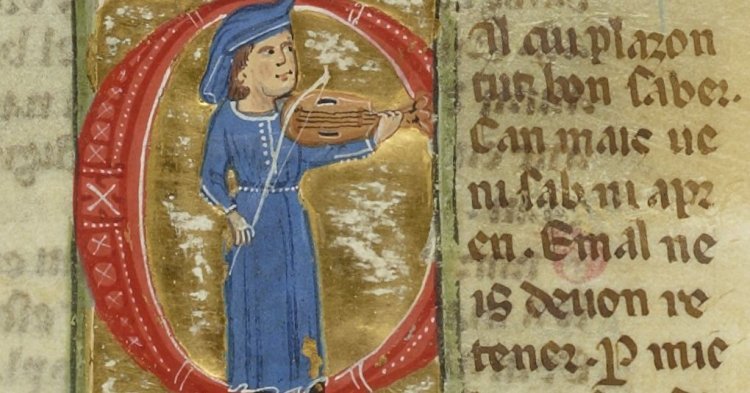 Cil cui plazon
tut bon saber.
Can mais ue
ni sab ni apr
en. E mal ne
is deuon re
tener. P mie